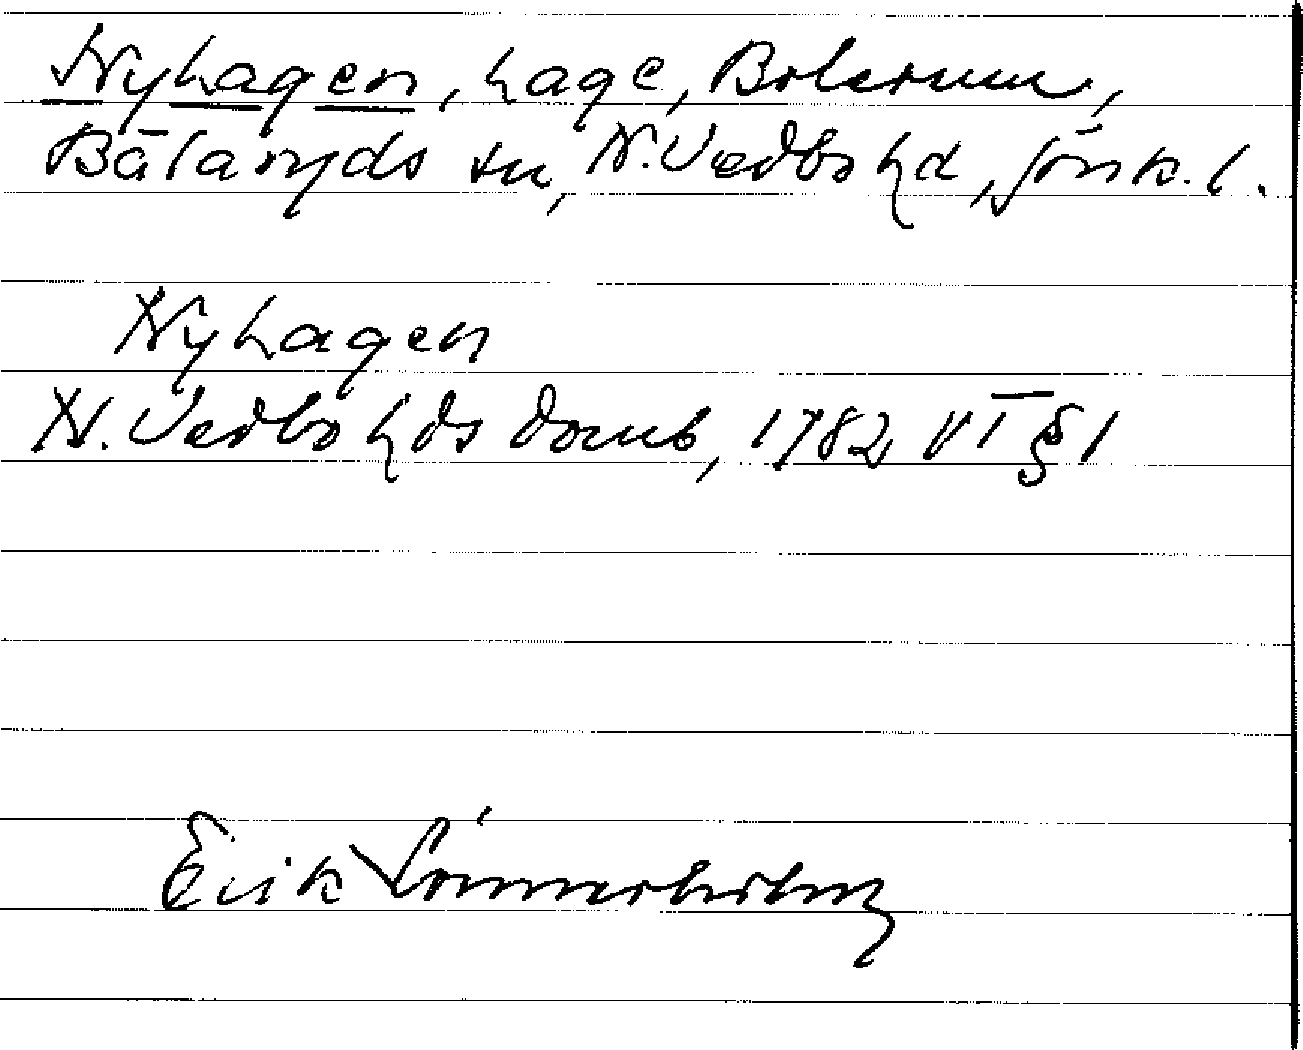 Nyhagen, hage, Bolerum,
Bälaryds sn, N. Vedbo hd, Jönk. l.
Nyhagen
N. Vedbo hds domb, 1782 VT § 1
Erik